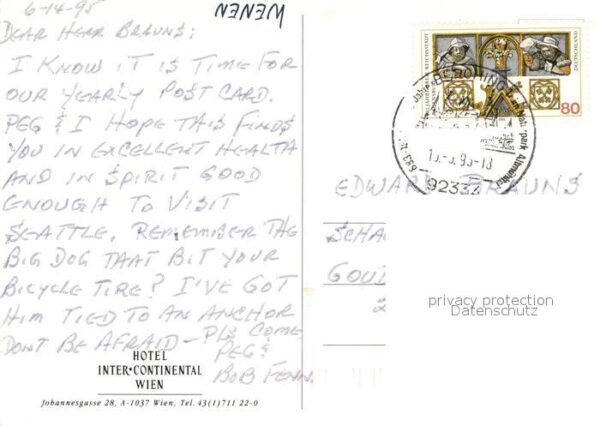 6-14-95
WENEN
DEAR HERR BRAUNS:
I KNOW IT IS TIME FOR
OUR YEARLY POST CARD.
PEG & I HOPE THIS FINDS
YOU IN EXCELLENT HEALTH
AND IN SPIRIT GOOD
ENOUGH TO VISIT
SEATTLE. REMEMBER THE
BIG DOG THAT BIT YOUR
BICYCLE TIRE? I'VE GOT
HIM TIED TO AN ANCHOR
DONT BE AFRAID - PLS COME
PEG &
BOB FENN.
HOTEL
INTER•CONTINENTAL
WIEN
Johannesgasse 28, A-1037 Wien, Tel. 43(1)711 22-0
REICHSSTADT
DEUTSCHLAND
80
Naturpark Altmühltal
92339
EDWARD BRAUNS
SCHA
GOU
2
privacy protection
Datenschutz